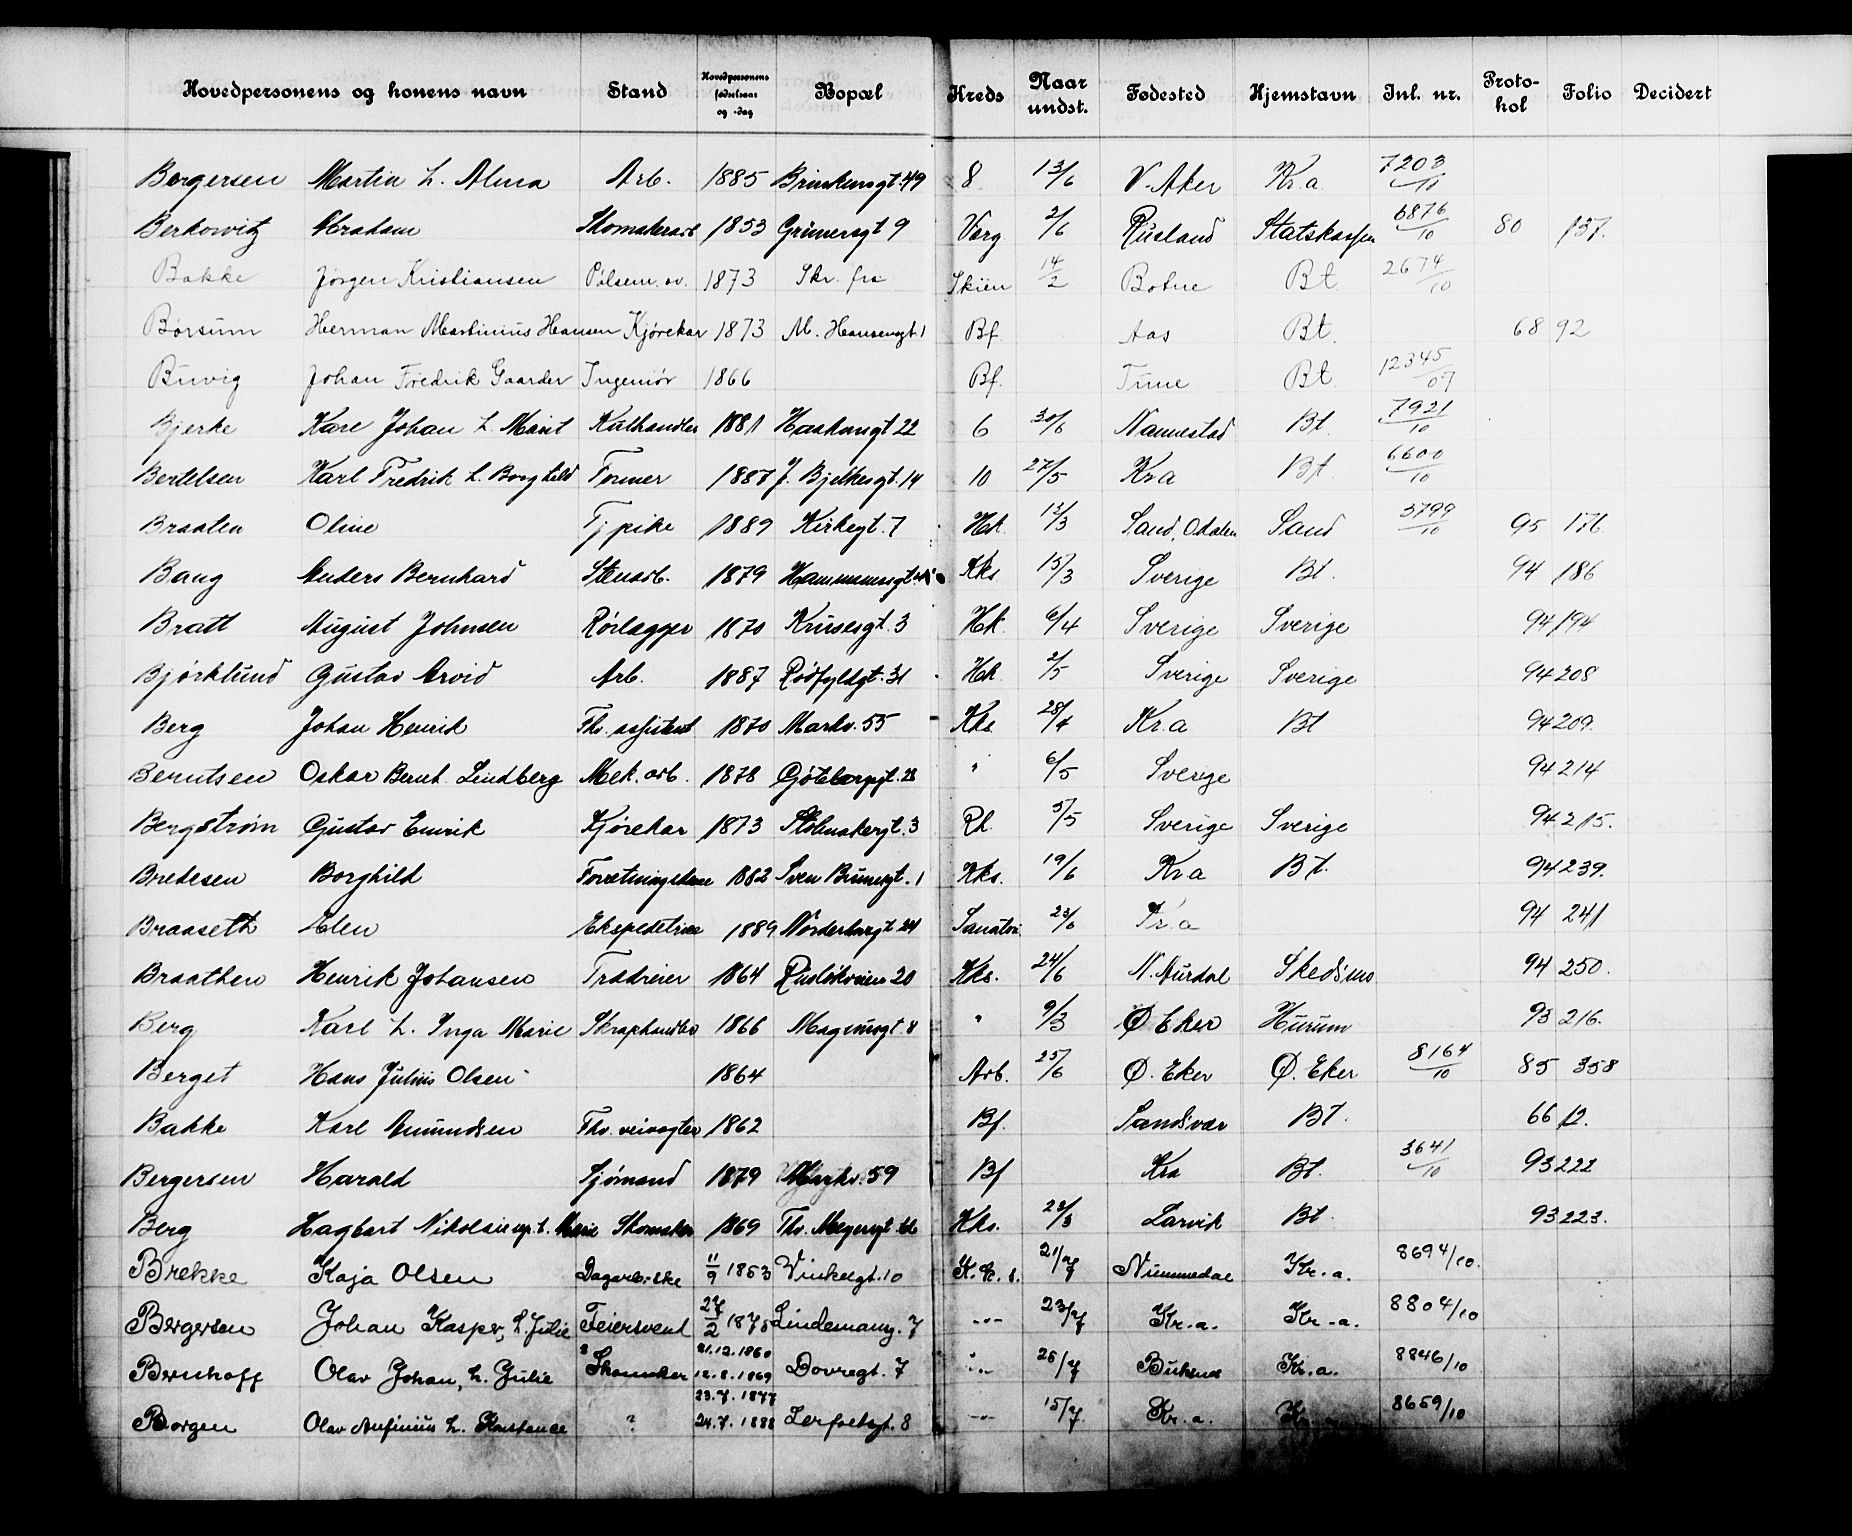 Hovedpersonens og konens navn Stand Hovedpersonens fødselsaar og -dag Bopæl Kreds Naar undst. Fødested Hjemstavn Inl. nr. Protokol Folio Decidert
Bergersen Martin h. Alma Arb. 1885 49 8 13/6 V. Aker Kr.a 7203/10
Berkowitz Abraham Skomakerarb 1853 Grünersgt 9 Varg 2/6 Rusland Statskassen 6876/10 80 137.
Bakke Jørgen Kristiansen Pølsem. sv. 1873 Skr. fra Skien 14/2 Botne Bt. 2674/10
Børsum Herman Martinius Hansen Kjørekar 1873 M. Hansensgt. 1 Bf. Aas Bt. 68 92
Buvig Johan Fredrik Gaarder Ingeniør 1866 Bf. Tune Bt 12345/07
Bjerke Kare Johan h. Marit Kulhandler 1881 Haakonsgt 22 6 30/6 Nannestad Bt. 7921/10
Bertelsen Karl Fredrik h. Borghild Former 1887 J. Bjelkesgt. 14 10 27/5 Kr.a Bt. 6600/10
Braaten Oline Tj pike 1889 Kirkegt. 7 Hk. 12/3 Sand, Odalen Sand 3799/10 95 176
Bang Anders Bernhard Stenarb. 1879 Kks. 15/3 Sverige Bt. 94 186
Bratt August Johnsen Rørlægger 1870 Krusesgt. 3 Hk. 6/4 Sverige Sverige 94 194
Bjørklund Gustav Arvid Arb. 1887 Rødfyldgt. 31 Hk. 2/5 Sverige Sverige 94 208
Berg Johan Henrik Thv. assistent 1870 Markv. 55 Kks. 28/4 Kr.a Bt 94 209.
Berntsen Oskar Bernt. Lindberg Mek. arb. 1878 Gøteborggt. 28 " 6/5 Sverige 94 214
Bergstrøm Gustav Enrik Kjørekar 1873 Stolmakergt. 3 Rh. 5/5 Sverige Sverige 94 215.
Bredesen Borghild Forretningsdame 1882 Sven Brunsgt. 1 Kks. 19/6 Kr.a Bt. 94 239.
Braaseth Elen Ekspeditrice 1889 Nordenborggt. 24 Sanator. 23/6 Kr.a 94 241
Braathen Henrik Johansen Trædreier 1864 Rusløkveien 20 Kks. 24/6 N. Aurdal Skedsmo 94 250.
Berg Karl h. Inga Marie Skraphandler 1866 Magnusgt. 8 " 9/3 Ø Eker Hurum 93 216.
Berget Hans Julius Olsen 1864 Arb. 25/6 Ø. Eker Ø. Eker 8164/10 85 358
Bakke Karl Amundsen Thv. veivogter 1862 Bf. Sandsvær Bt. 66 12.
Bergersen Harald Sjømand 1879 Markv. 59 Bf Kra Bt. 3641/10 93 222
Berg Hagbart Nikolai h. Marie Skomaker 1869 Thv. Meyersgt. Kks. 22/3 Larvik Bt. 93 223.
Brekke Kaja Olsen Dagarb.ske 11/9 1853 Vinkelgt. 10 K.k.s. 21/7 Nummedal Kr.a. 8694/10.
Bergersen Johan Kasper, h. Julie Feiersvend 27/2 1875 Lindemansg. 7 -"- 23/7 Kr.a. Kr.a. 8804/10
Bernhoff Olav Johan, h. Julie Skomaker 21.12.1860 12.8.1869 Dovregt. 7 -"- 25/7 Buksnes Kr.a. 8846/10
Borgen Olav Anfinius h. Konstance ? 23.7.1877 24.7.1888 Lerfossgt. 8 -"- 15/7. Kr.a. Kr.a. 8659/10